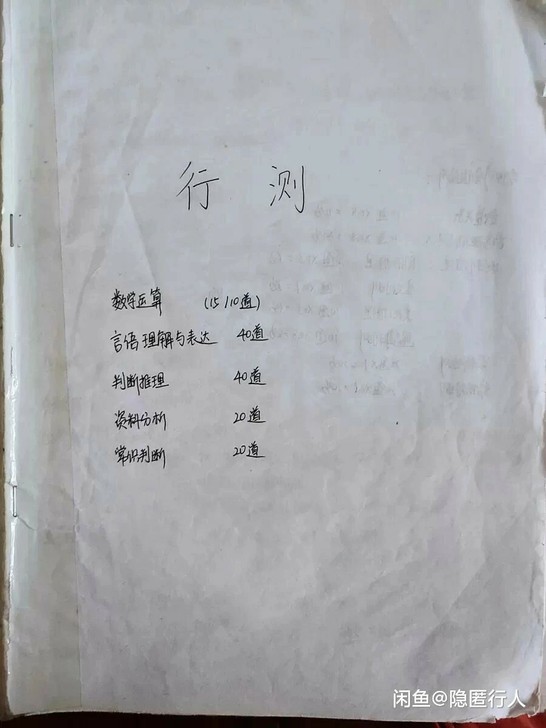 行 测
数学运算 (15/10道)
言语理解与表达 40道
判断推理 40道
资料分析 20道
常识判断 20道
闲鱼@隐匿行人